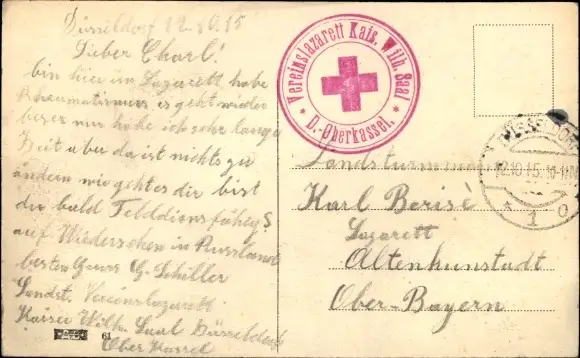 Düsseldorf 12.10.15
Lieber Charl!
bin hier im Lazarett habe
Rheumatismus es geht wieder
beser nur habe ich sehr lange
Zeit aber da ist nichts zu
ändern wie geht es dir bist
du bald Felddiensfähig
auf Wiedersehen in Russland
besten Gruss G. Schiller
Landst. Vereinslazarett
Kaiser Wilh. Saal Düsseldorf
Ober Kassel
61
Vereinslazarett Kais. Wilh. Saal
* D.-Oberkassel. *
12.10.15. 10-11
* 1 o
Landsturmmann
Karl Berisé
Lazarett
Altenkunstadt
Ober-Bayern